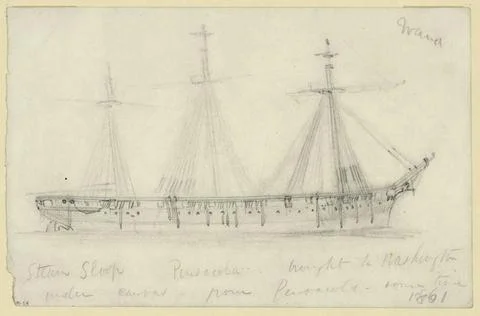 Waud
Steam Sloop Pensacola - brought to Washington
under canvas - from Pensacola - some time
1861